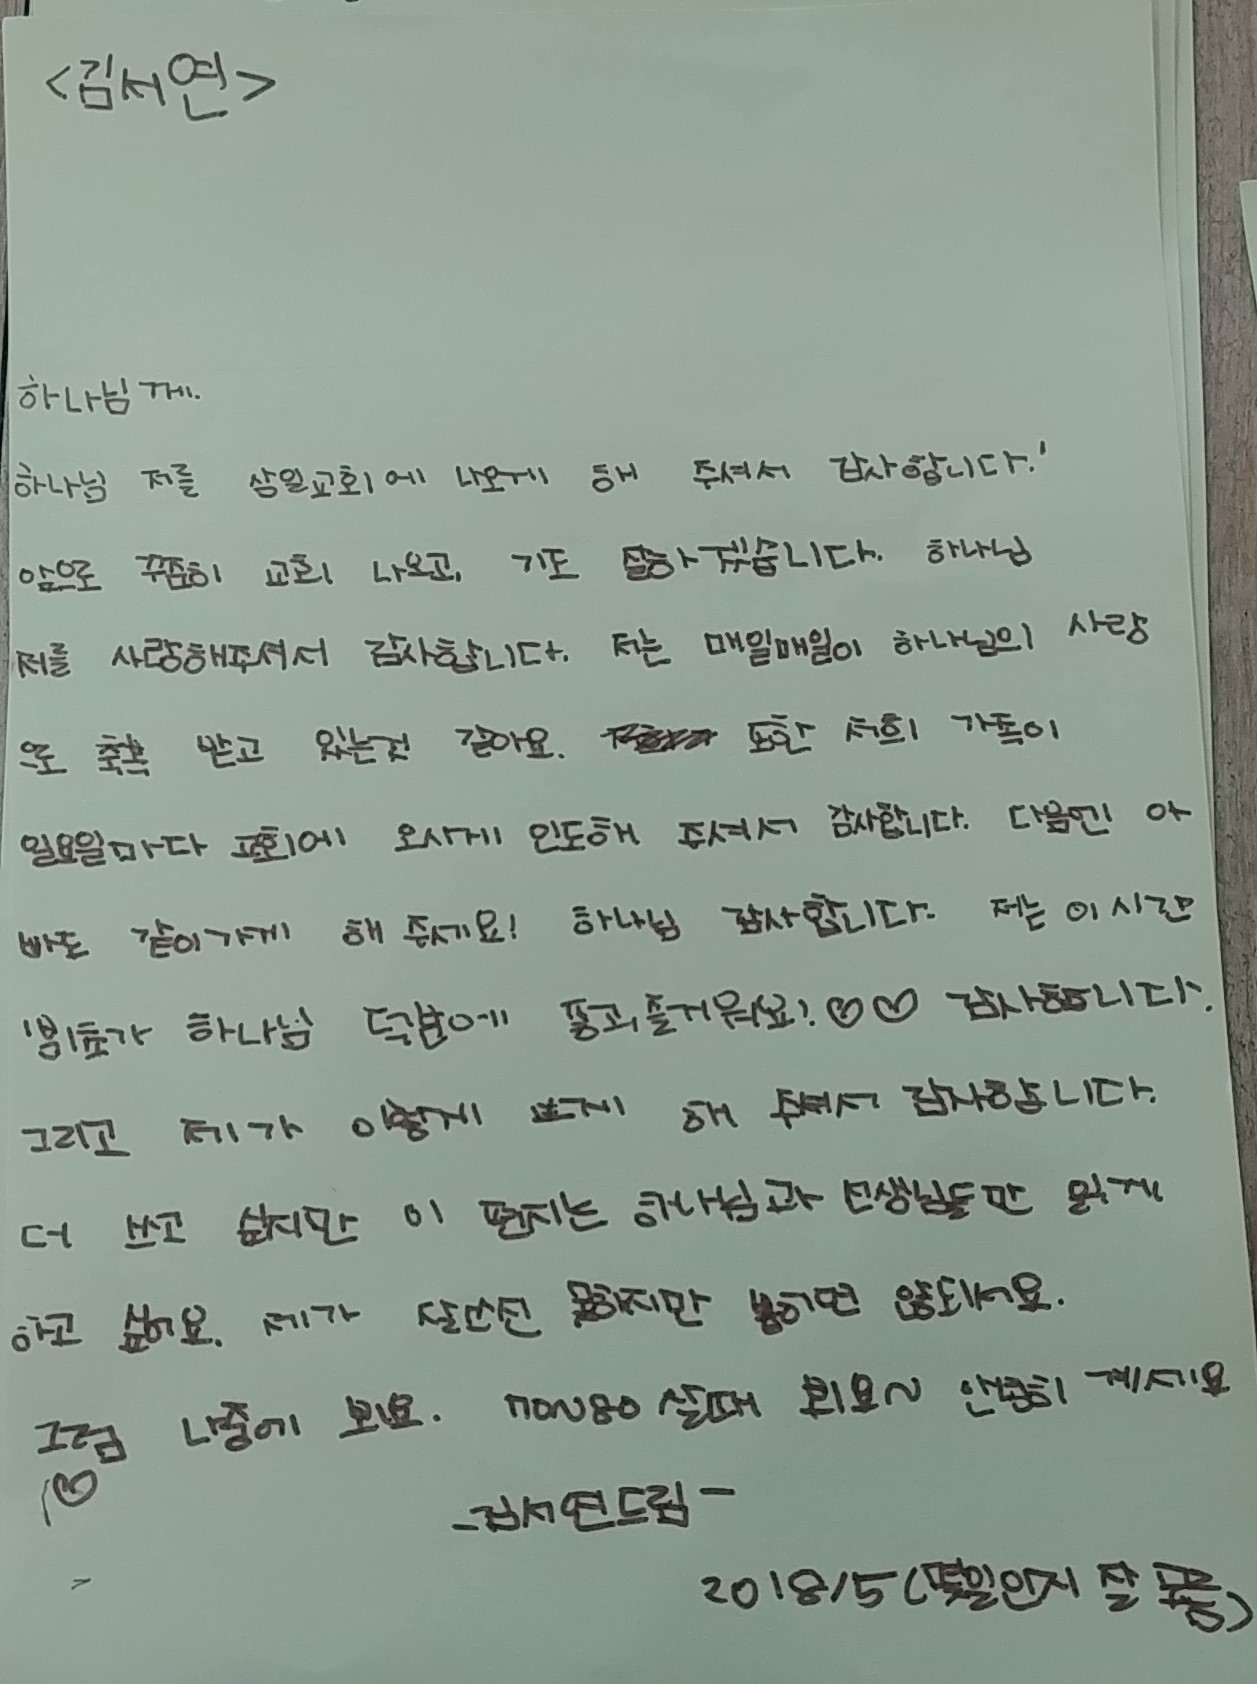 <김서연>
하나님께.
하나님 저를 삼일교회에 나오게 해 주셔서 감사합니다.
앞으로 꾸준히 교회 나오고, 기도 잘하겠습니다. 하나님
저를 사랑해주셔서 감사합니다. 저는 매일매일이 하나님의 사랑
으로 축복 받고 있는것 같아요. 또한 저희 가족이
일요일마다 교회에 오시게 인도해 주셔서 감사합니다. 다음엔 아
빠도 같이가게 해 주세요! 하나님 감사합니다. 저는 이 시간
하나님 덕분에 즐거워요! ♡♡ 감사합니다.
그리고 제가 이렇게 쓰게 해 주셔서 감사합니다.
더 쓰고 싶지만 이 편지는 하나님과 선생님들만 읽게
하고 싶어요. 제가 못하지만 않되서요.
그럼 나중에 뵈요. 70~80살때 뵈요~ 안녕히 계세요
♡
-김서연드림-
2018/5(몇일인지 잘 모름)